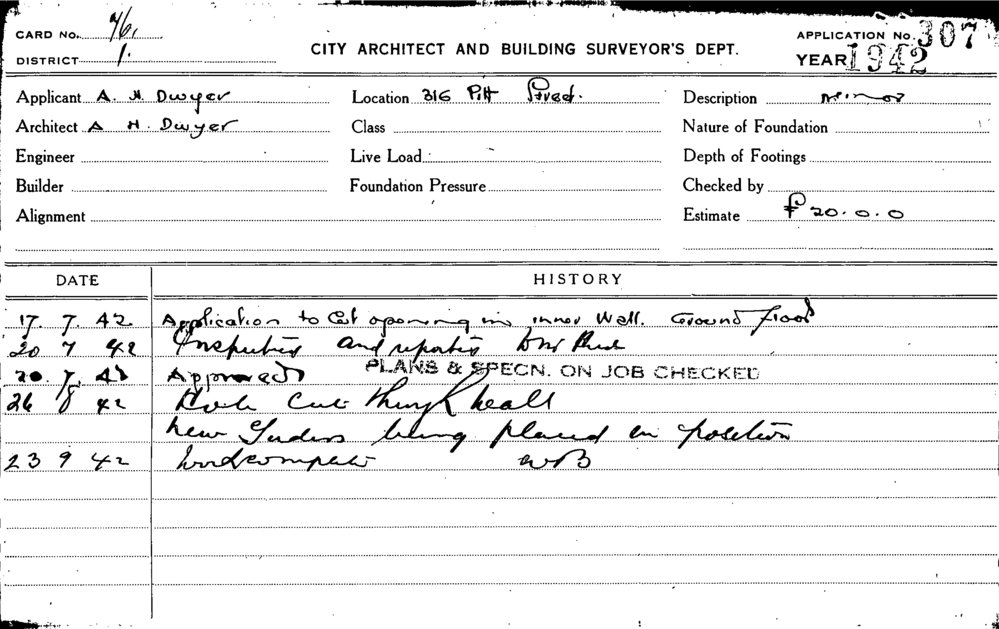 CARD No. 76/1
DISTRICT 1.
CITY ARCHITECT AND BUILDING SURVEYOR'S DEPT.
APPLICATION No. 307
YEAR 1942
Applicant A. H. Dwyer Location 316 Pitt Street. Description minor
Architect A H. Dwyer Class Nature of Foundation
Engineer Live Load Depth of Footings
Builder Foundation Pressure Checked by
Alignment Estimate £ 20.0.0
DATE HISTORY
17. 7. 42 Application to Cut opening in inner Wall. Ground floor
20 7 42 Inspected and reported
20. 7. 42 Approved PLANS & SPECN. ON JOB CHECKED
26 8 42 Hole Cut through wall
new Girders being placed in position
23 9 42 work complete WB